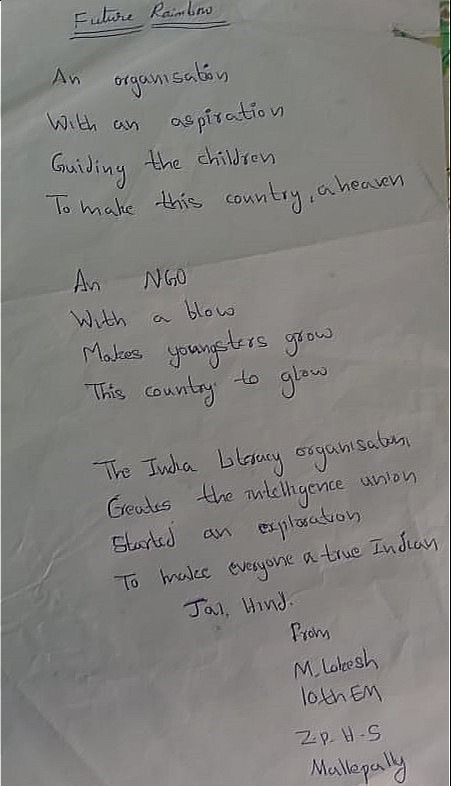 Future Rainbow
An organisation
With an aspiration
Guiding the children
To make this country, a heaven
An NGO
With a blow
Makes youngsters grow
This country to glow
The India Literacy organisation,
Creates the intelligence union
Started an exploration
To make everyone a true Indian
Jai, Hind.
From
M. Lokesh
10th EM
Z.P.H.S
Mallepally